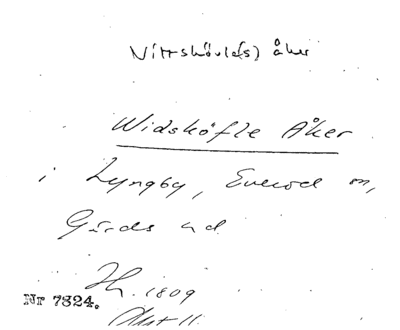 Vittskövle(s) åker
Widsköfle Åker
i Lyngby, Everöd sn,
Gärds hd
1809
Nr 7324.
Akt 11.